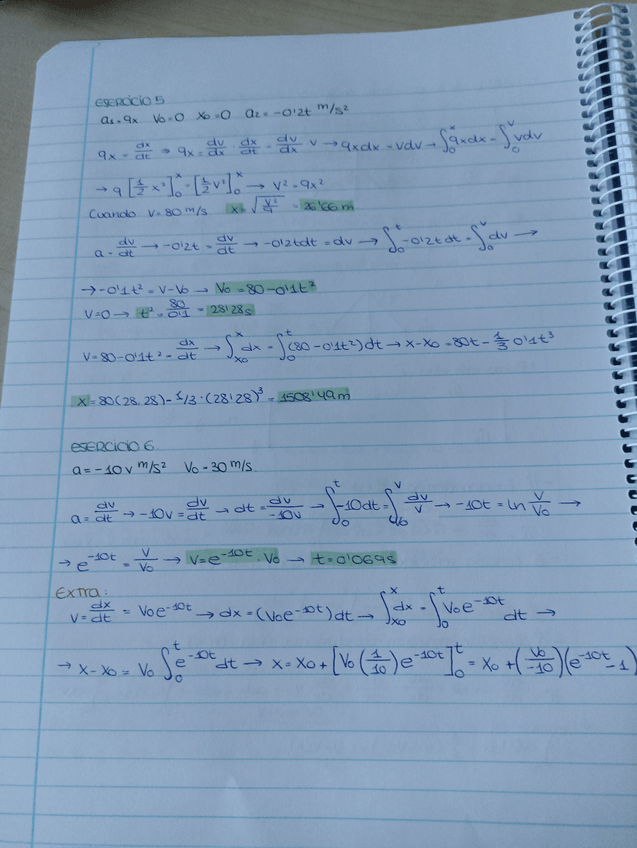 EJERCICIO 5
a₁=9x V₀=0 X₀=0 a₂=-0'2t m/s²
9x = dx/dt → 9x = dv/dx · dx/dt = dv/dx v → 9xdx = vdv → ∫₀ˣ 9xdx = ∫₀ᵛ vdv
→ 9 [1/2 x²]₀ˣ = [1/2 v²]₀ˣ → v² = 9x²
Cuando v=80 m/s x = √(v²/9) = 26'66 m
a = dv/dt → -0'2t = dv/dt → -0'2tdt = dv → ∫₀ᵗ -0'2t dt = ∫₀ᵛ dv →
→ -0'1t² = v-v₀ → V₀ = 80-0'1t²
v=0 → t² = 80/0'1 = 28'28s
v=80-0'1t² = dx/dt → ∫ₓ₀ˣ dx = ∫₀ᵗ (80-0'1t²)dt → x-x₀ = 80t - 1/3 0'1t³
x = 80(28.28) - 1/3 · (28'28)³ = 1508'49m
EJERCICIO 6
a=-10v m/s² V₀=30 m/s.
a = dv/dt → -10v = dv/dt → dt = dv/-10v → ∫₀ᵗ -10dt = ∫ᵥ₀ᵛ dv/v → -10t = ln v/v₀ →
→ e^-10t = v/v₀ → v = e^-10t · V₀ → t = 0'069s
EXTRA:
v = dx/dt = V₀e^-10t → dx = (V₀e^-10t)dt → ∫ₓ₀ˣ dx = ∫₀ᵗ V₀e^-10t dt →
→ x-x₀ = V₀ ∫₀ᵗ e^-10t dt → x = x₀ + [V₀ (1/10) e^-10t]₀ᵗ = x₀ + (V₀/-10)(e^-10t -1)